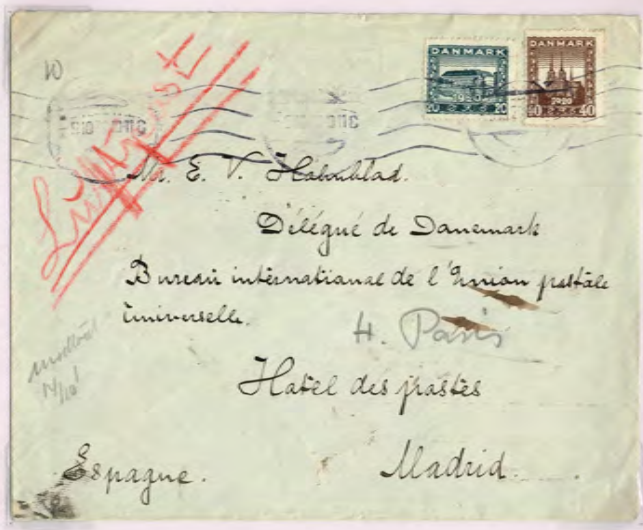 DANMARK DANMARK
1920 1920
20 20 40 40
Luftpost
Mr. E. V. Holmblad.
Délégué de Danemark
Bureau international de l'Union postale
universelle.
H. Paris
Hotel des postes
Espagne. Madrid.